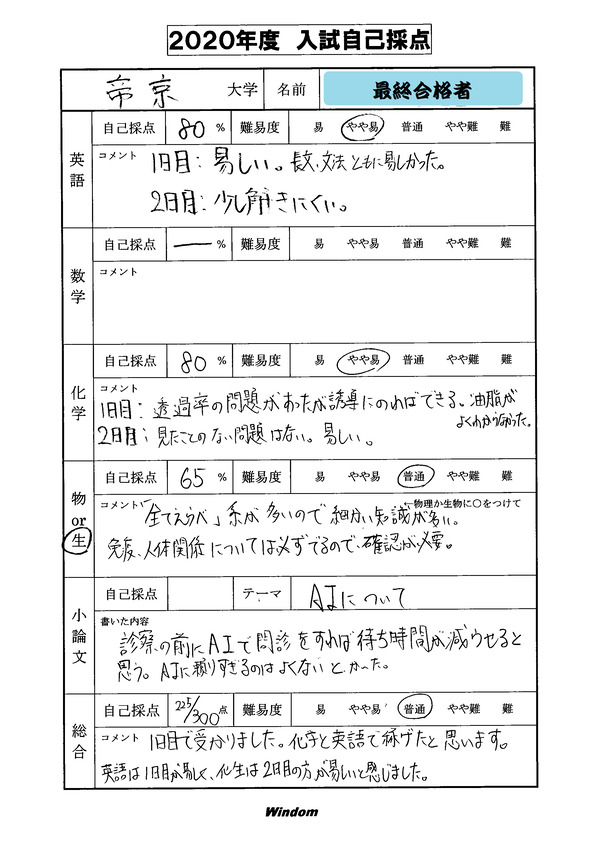 2020年度 入試自己採点
帝京 大学 名前 最終合格者
英語 自己採点 80 % 難易度 易 やや易 普通 やや難 難
コメント 1日目：易しい。長文、文法ともに易しかった。
2日目：少し解きにくい。
数学 自己採点 ー % 難易度 易 やや易 普通 やや難 難
コメント
化学 自己採点 80 % 難易度 易 やや易 普通 やや難 難
コメント
1日目：透過率の問題があったが誘導にのればできる。油脂が
よくわからなかった。
2日目：見たことのない問題はない。易しい。
物or生 自己採点 65 % 難易度 易 やや易 普通 やや難 難
←物理か生物に○をつけて
コメント 「全てえらべ」系が多いので細かい知識が多い。
免疫、人体関係については必ずでるので、確認が必要。
小論文 自己採点 テーマ AIについて
書いた内容
診察の前にAIで問診をすれば待ち時間が減らせると
思う。AIに頼りすぎるのはよくないとかいた。
総合 自己採点 225/300 点 難易度 易 やや易 普通 やや難 難
コメント 1日目で受かりました。化学と英語で稼げたと思います。
英語は1日目が易しく、化生は2日目の方が易しいと感じました。
Windom